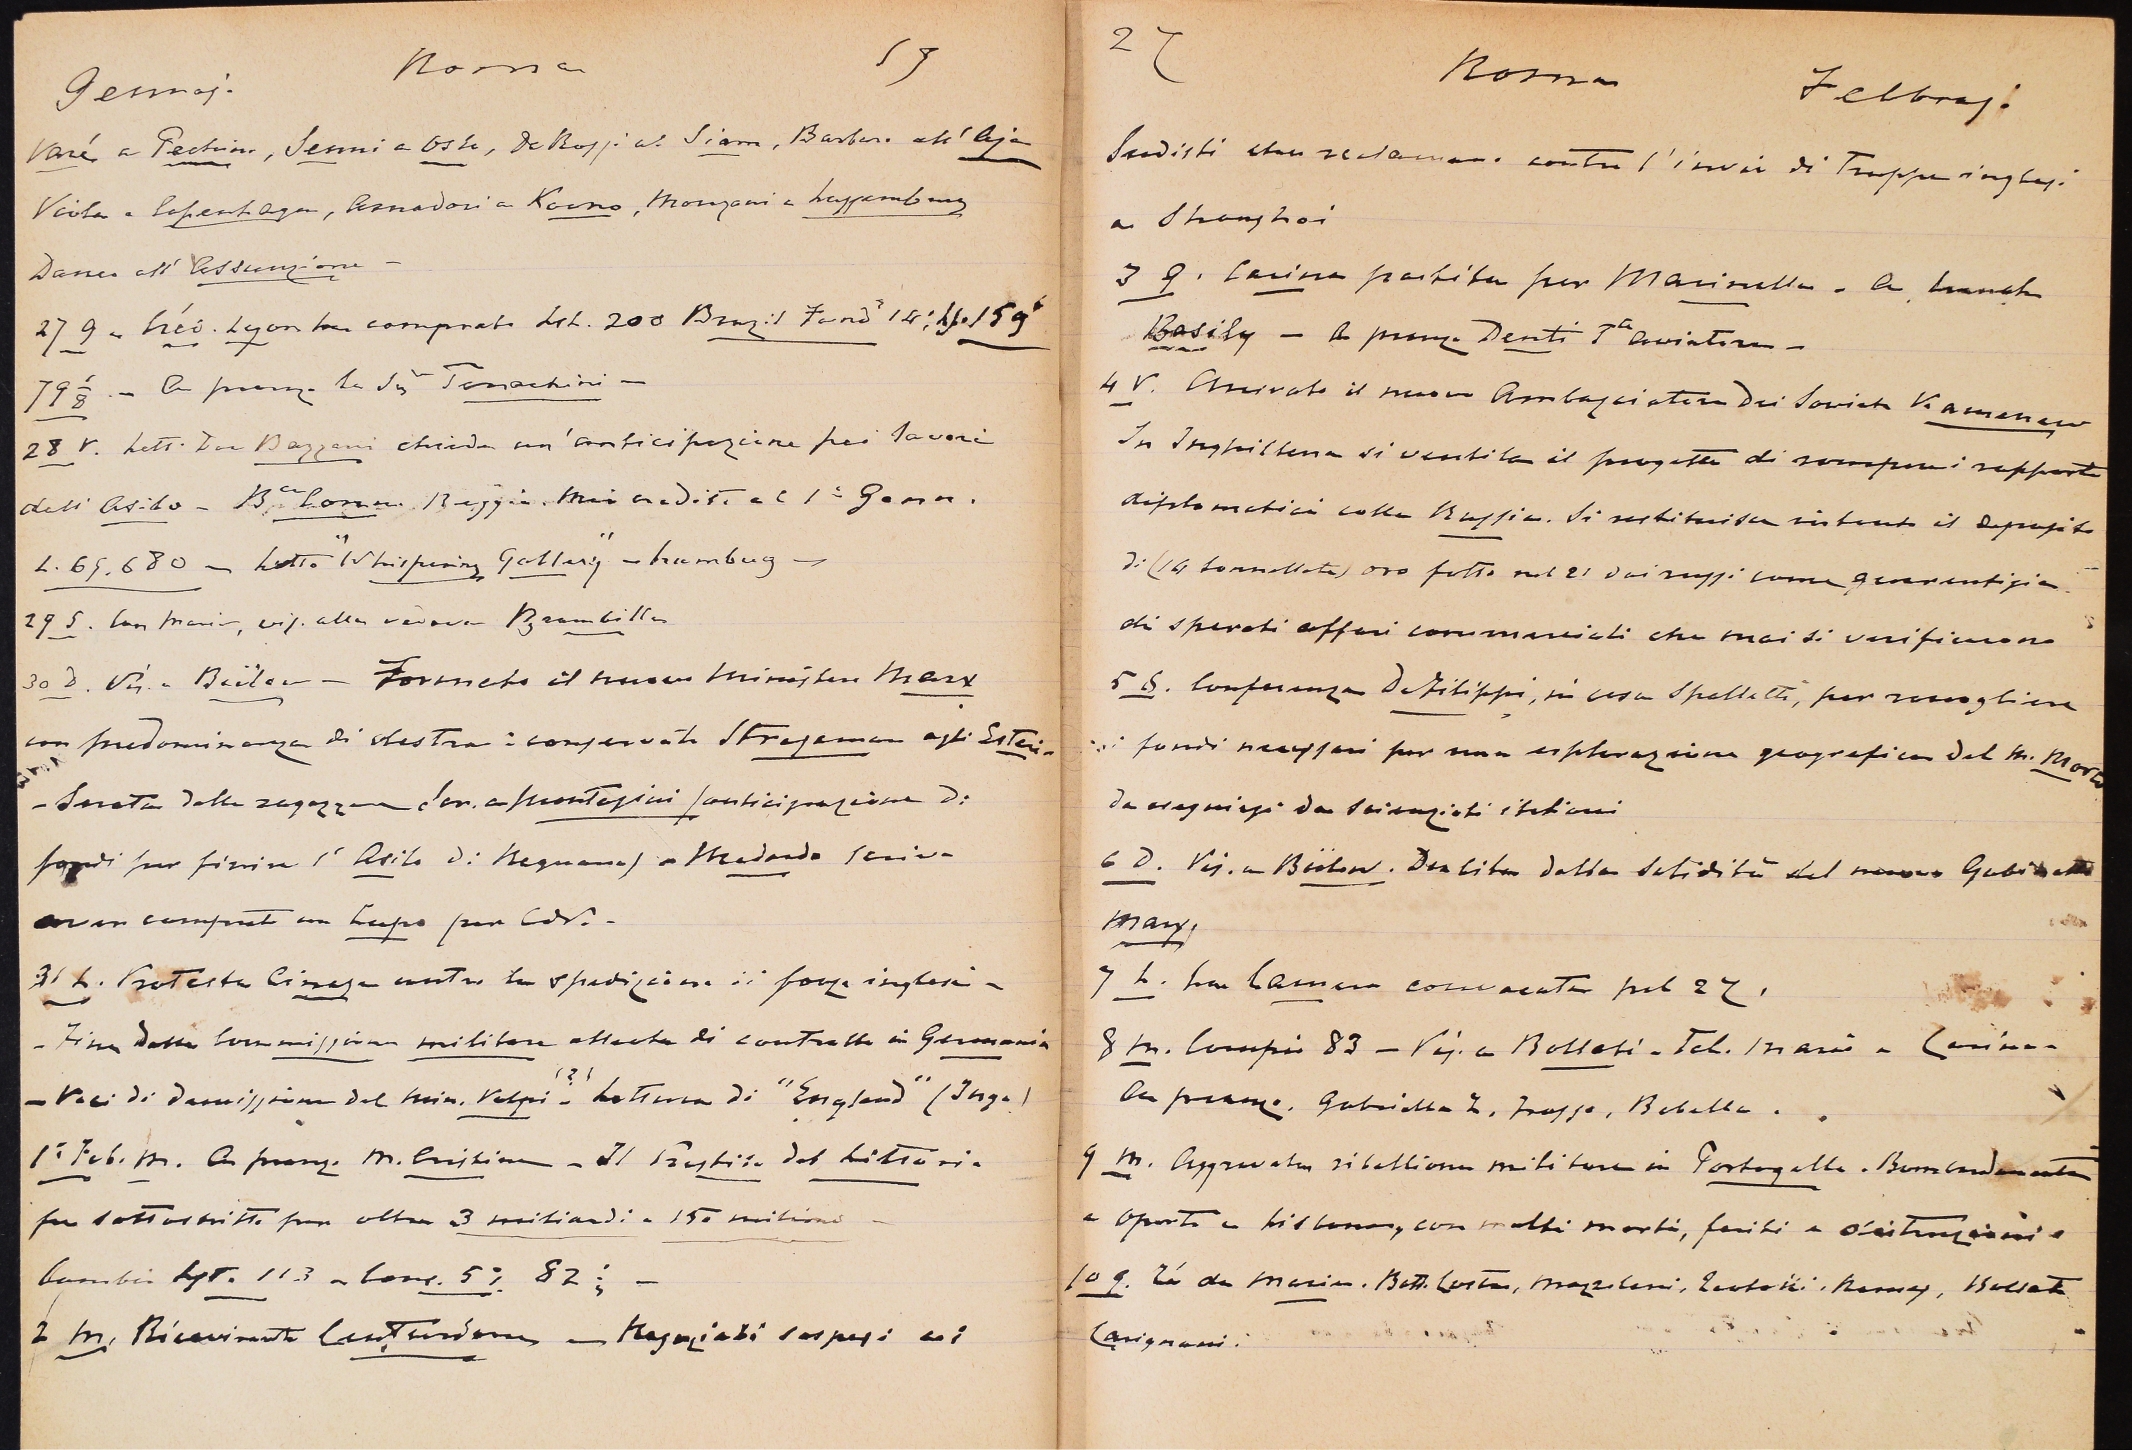 Gennaj. Roma 53
Varé a Pechino, Senni a Oslo, De Rossi al Siam, Barbaro all'Aja
Viola a Copenhagen, Amadori a Kovno, Monzani a Lussemburg
Daneo all'Assunzione –
27 g – Créd. Lyon ha comprato Lst. 200 Brazil Fund 14
79 7/8 – A pranzo la Sig.ra Terrachini –
28 V. Lett. Don Bazzani chiede un'anticipazione pei lavori
dell'Asilo – B.ca Comm. Reggio. Mio credito al 1° Genn.
L. 65.680 – Letto "Whispering Gallery" – humbug –
29 S. Con Maria, vis. alla vedova Brambilla
30 D. Vis. a Bülow – Formato il nuovo Ministero Marx
con predominanza di destra: conservato Stresemann agli Esteri –
– Serata delle ragazze anticipazione di
fondi per finire l'Asilo di Regnano) – Medardo scrive
aver comprato un Lupo per CdV. –
31 L. Protesta Cinese contro la spedizione di forze inglesi –
– Fine della Commissione militare alleata di controllo in Germania
– Voci di demissione del Min. Volpi (?) – Lettura di "England" (Inge)
1° Feb. M. A pranzo M. Cristina – Il Prestito del Littorio
fu sottoscritto per oltre 3 miliardi e 150 milioni –
Cambio Lst. 113 – Cons. 5% 82 1/2 –
2 M. Ricevimento Centurione – Negoziati sospesi coi
27 Roma Febbraj.
Sudisti che reclamano contro l'invio di Truppe inglesi
a Shanghai
3 g. Carina partita per Marinella – A lunch
Basily – A pranzo Denti T.a aviatore –
4 V. Arrivato il nuovo Ambasciatore dei Soviets Kamenew
In Inghilterra si ventila il progetto di rompere i rapporti
diplomatici colla Russia. Si restituisce intanto il deposito
di (14 tonnellate) oro fatto nel 21 dai russi come guarentigia
di sperati affari commerciali che mai si verificarono
5 S. Conferenza De Filippi, in casa Spalletti, per raccogliere
i fondi necessari per una esplorazione geografica del M. Morto
da eseguirsi da scienziati italiani
6 D. Vis. a Bülow. Dubita della solidità del nuovo Gabinetto
Marx,
7 L. La Camera convocata pel 27.
8 M. Compio 83 – Vis. a Bollati – Tel. Mario e Carina –
A pranzo. Gabriella Z. Babella.
9 M. Aggravata ribellione militare in Portogallo. Bombardamento
a Oporto e Lisbona, con molti morti, feriti e distruzioni.
10 g. Té da Maria. Bott. Costa, Bollati
Carignani.